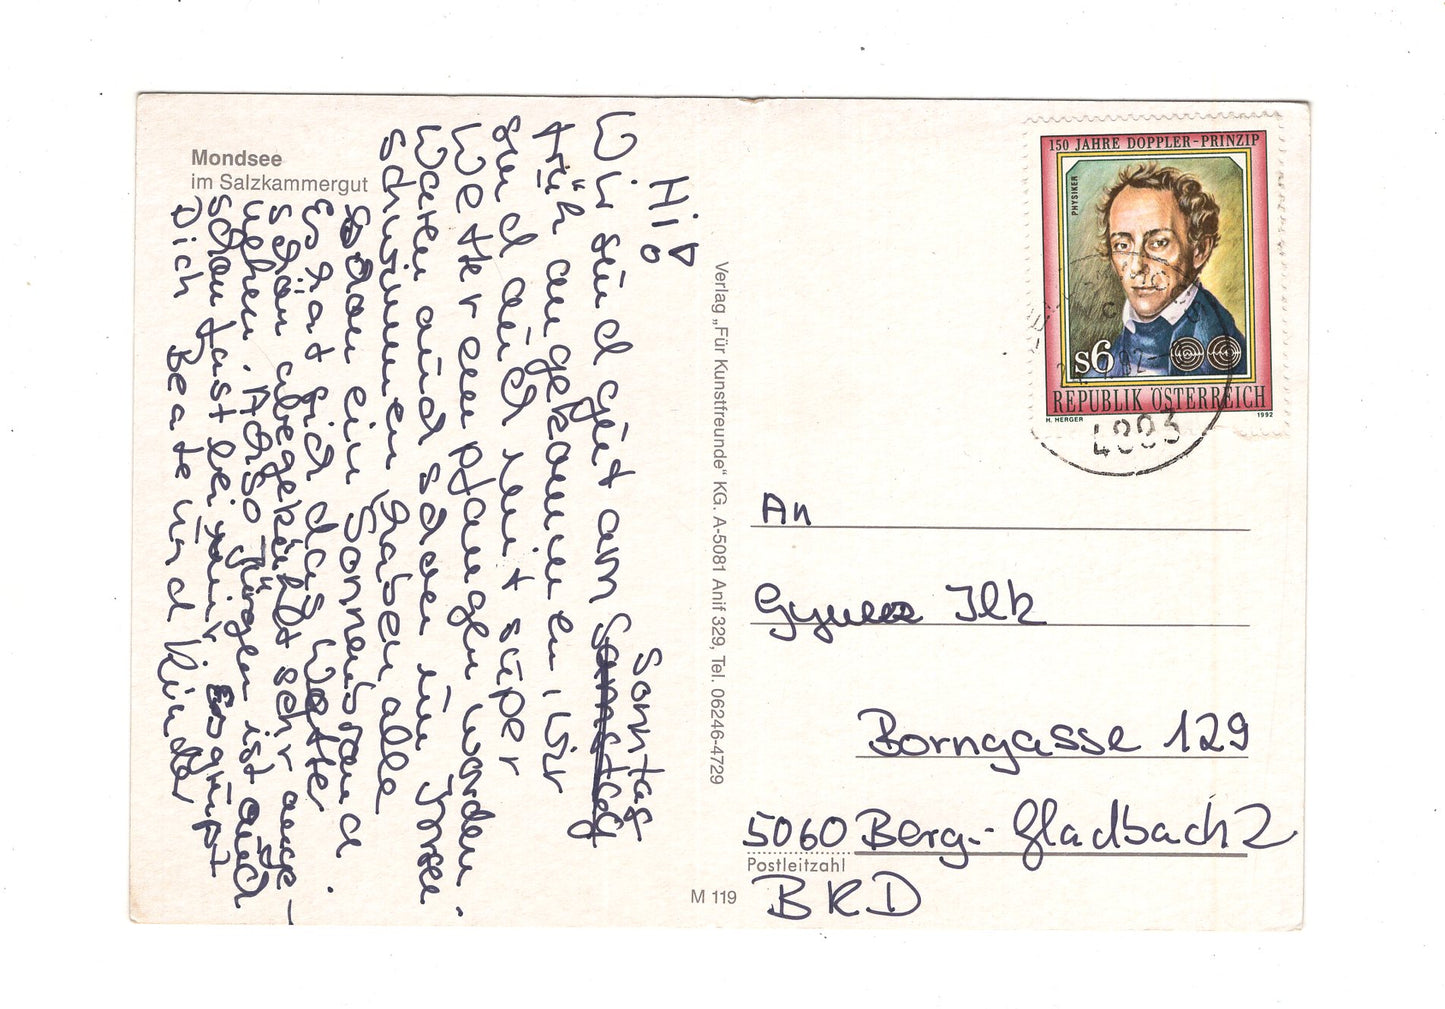 Mondsee
im Salzkammergut
Hi!
Wir sind gut am Sonntag
früh angekommen, wir
sind auch mit super
Wetter empfangen worden.
Waren auch schon im Irrsee
schwimmen haben alle
schon ein Sonnenbrand.
Es hat sich das Wetter
schon abgekühlt sehr ange-
nehm. Also Jürgen ist auch
schon fast bei mir. Es grüßt
Dich Beate und Kinder
Verlag „Für Kunstfreunde“ KG. A-5081 Anif 329, Tel. 06246-4729
M 119
150 JAHRE DOPPLER-PRINZIP
PHYSIKER
s6
REPUBLIK ÖSTERREICH
H. HERGER 1992
4893
An
Ilk
Borngasse 129
5060 Berg.-Gladbach 2
Postleitzahl
BRD